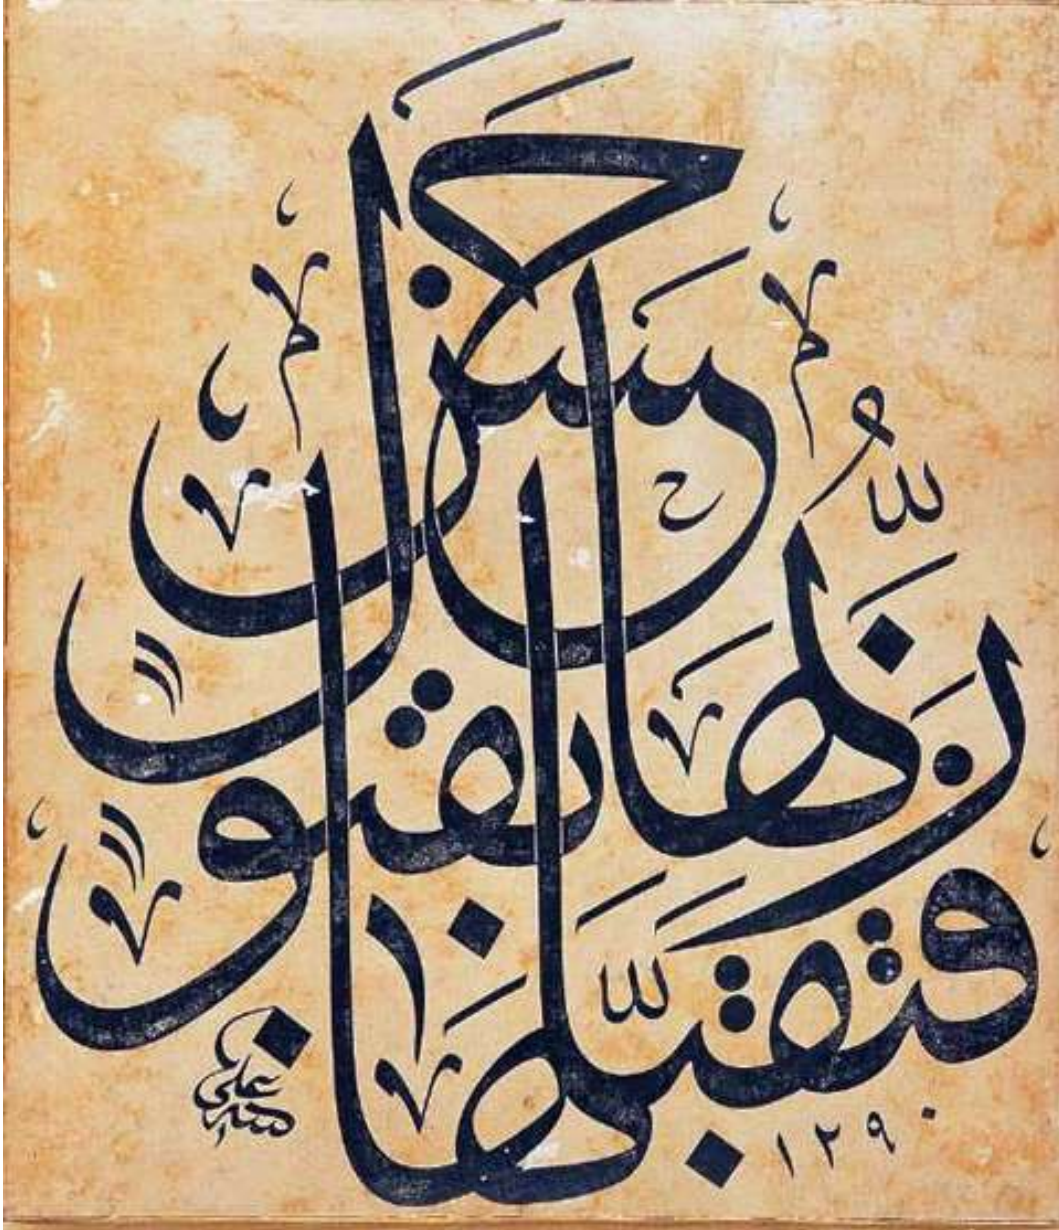 فَتَقَبَّلَهَا رَبُّهَا بِقَبُولٍ حَسَنٍ
علی
١٢٩٠